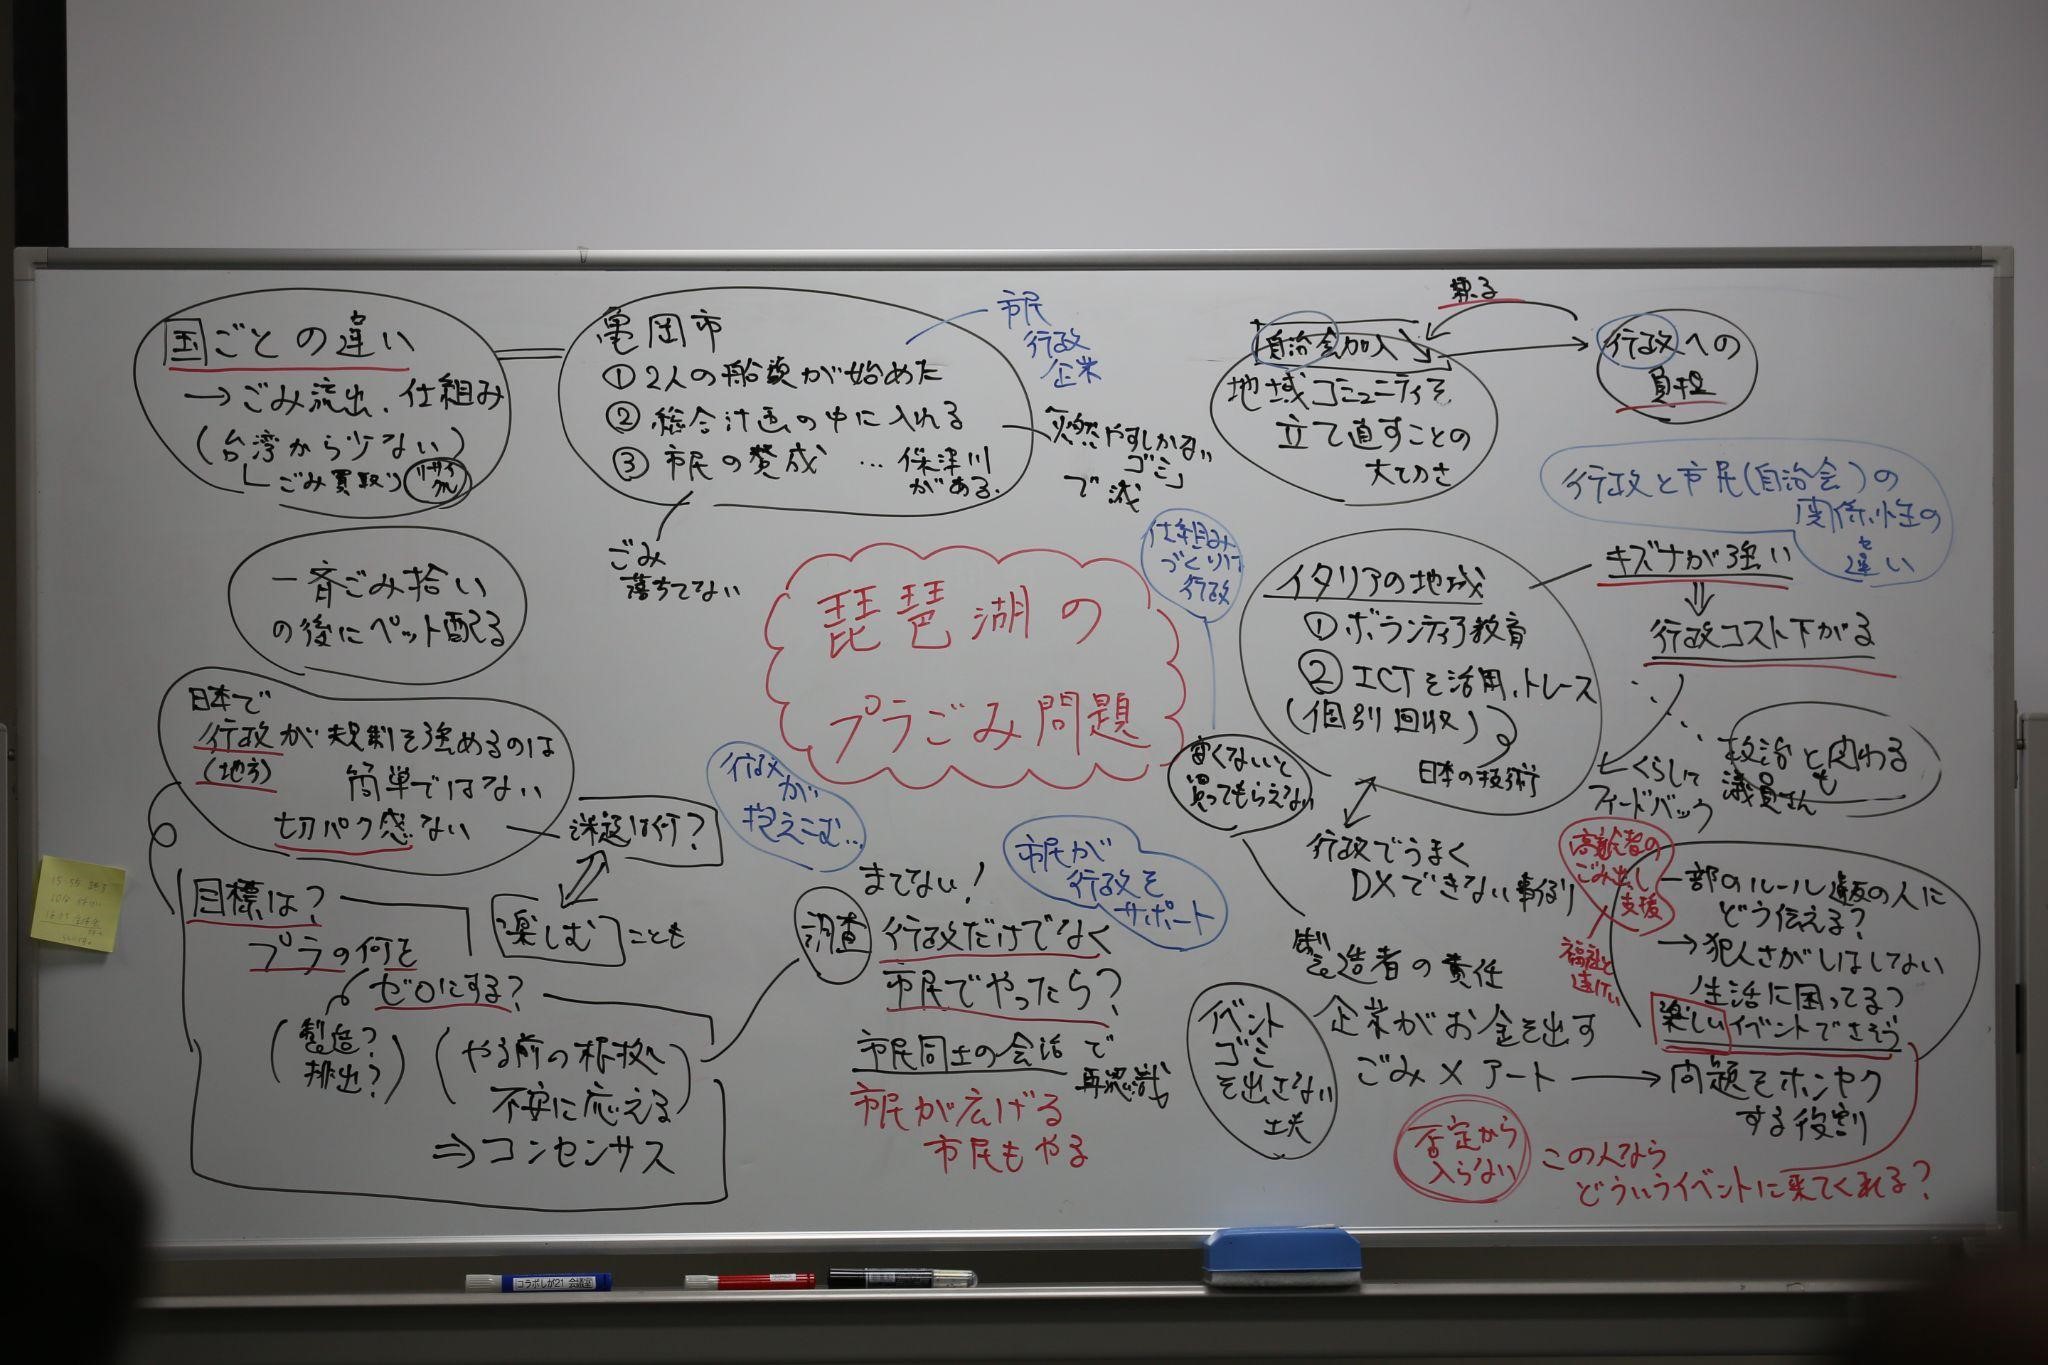 国ごとの違い
→ごみ流出、仕組み
(台湾から少ない)
ごみ買取り
リサイクル
亀岡市
① 2人の船頭が始めた
② 総合計画の中に入れる
③ 市民の賛成 … 保津川
がある。
市民
行政
企業
「燃やすしかない
ゴミ」
で減
ごみ
落ちてない
自治会加入↘
頼る
行政への
負担
地域コミュニティを
立て直すことの
大切さ
行政と市民(自治会)の
関係性の
違い
一斉ごみ拾い
の後にペット配る
琵琶湖の
プラごみ問題
仕組み
づくりは
行政
イタリアの地域
① ボランティア教育
② ICTを活用、トレース
(個別回収)
日本の技術
キズナが強い
⇓
行政コスト下がる
くらして
フィードバック
政治と関わる
議員さんも
日本で
行政が規制を強めるのは
(地方)
簡単ではない
切パク感ない
課題は何?
楽しむ ことも
行政
が
抱えこむ…
安くないと
買ってもらえない
行政でうまく
DXできない事例
目標は?
プラの何を
ゼロにする?
(製造?
排出?)
(やる前の根拠へ
不安に応える)
⇒コンセンサス
調査
まてない!
行政だけでなく
市民でやったら?
市民が
行政を
サポート
市民同士の会話で
再認識
市民が広げる
市民もやる
製造者の責任
企業がお金を出す
ごみ×アート → 問題をホンヤク
する役割
イベント
ゴミ
を出さない
工夫
高齢者の
ごみ出し
支援
福祉と
連けい
一部のルール違反の人に
どう伝える?
→犯人さがしはしてない
生活に困ってる?
楽しいイベントでさそう
否定から
入らない
この人なら
どういうイベントに来てくれる?
コラボしが21 会議室